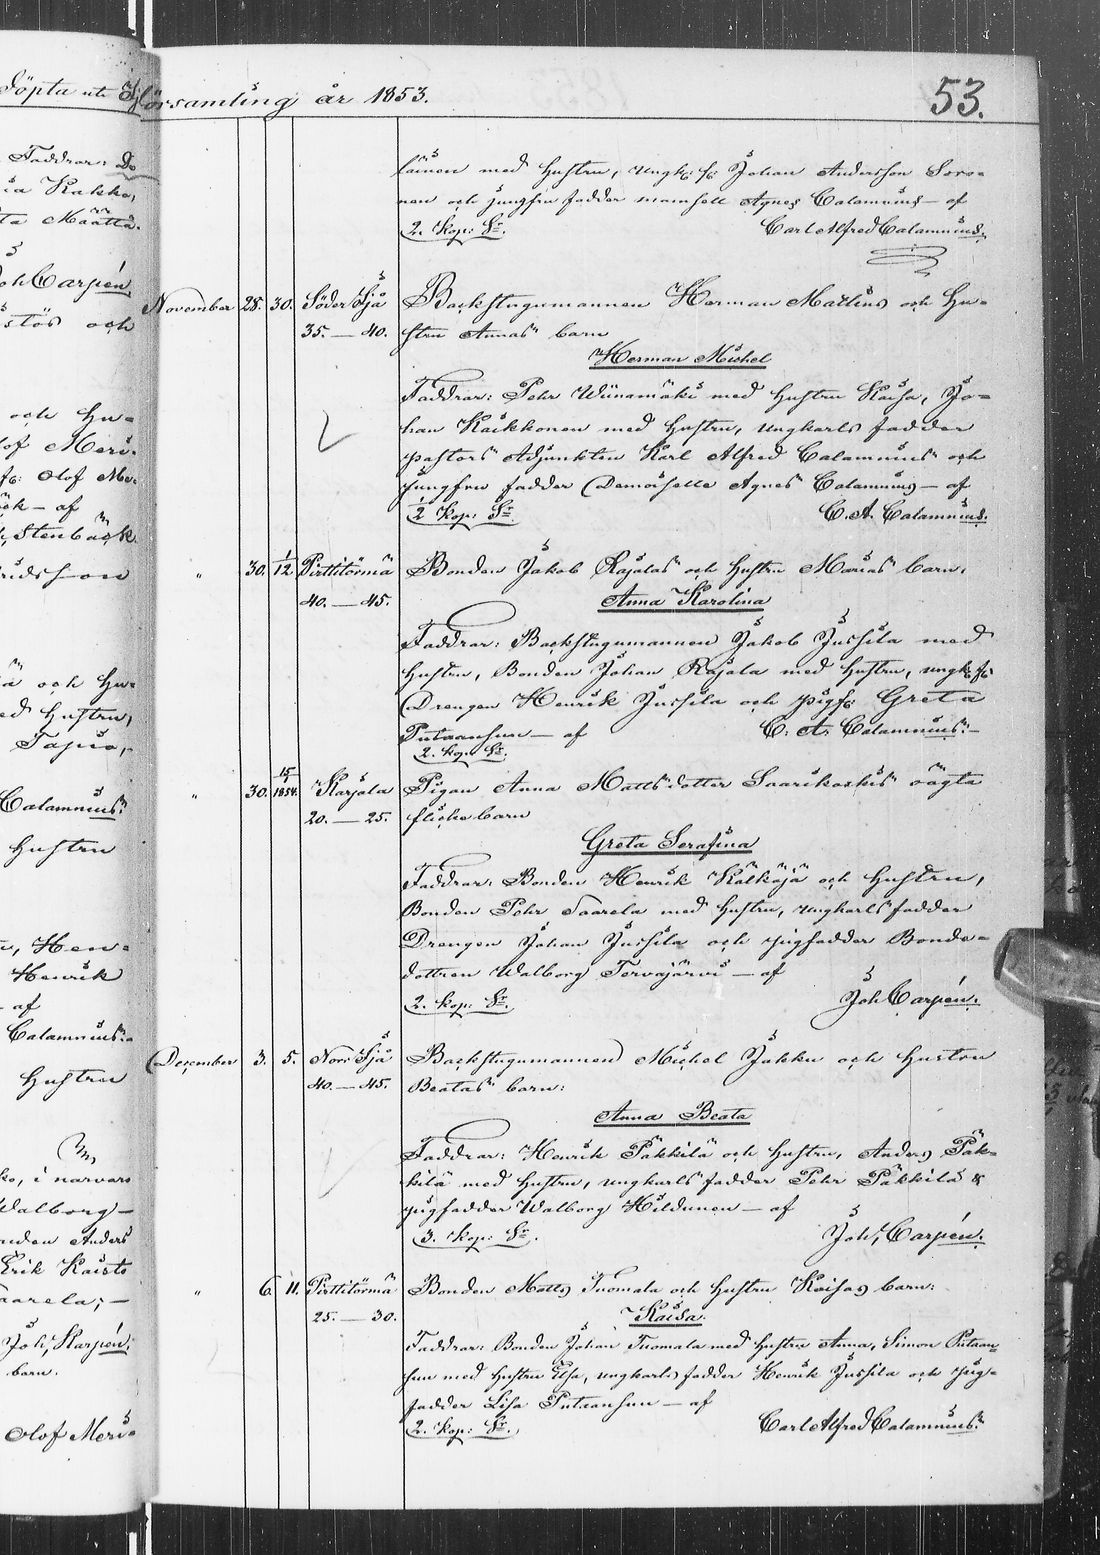 Döpta uti församling år 1853.
53.
Faddrar: Do
ia Kakko,
ta Määttä.
Joh Carpén
och
och Hu=
lof Meri=
fr: Olof Me=
ök — af
Stenbäck
ä och Hu=
ed Hustru,
Tapio,
Calamnius.
Hustru
Hen=
Henrik
af
Calamnius.
Hustru
i närvaro
Walborg —
nden Anders
Erik Kaisto
aarela; —
Joh, Karpén.
barn.
Olof Meri=
läinen med Hustru, ungk: f: Johan Andersson Soro=
nen och jungfru fadder mamsell Agnes Calamnius — af
2. kop: Sr. Carl Alfred Calamnius.
November 28. 30. Söder Sjä Backstugumannen Herman Matlins och Hu=
35. — 40. stru Annas barn
Herman Michel
Faddrar: Pehr Wiinamäki med Hustru Kaisa, Jo=
han Kaikkonen med Hustru, ungkarls fadder
pastors Adjunkten Karl Alfred Calamnius och
jungfru fadder Demoiselle Agnes Calamnius — af
2 kop: Sr. C. A. Calamnius.
" 30. 1/12 Pirttitörmä Bonden Jakob Rajalas och Hustru Marias barn:
40. — 45. Anna Karolina
Faddrar: Backstugumannen Jakob Jussila med
Hustru, Bonden Johan Rajala med Hustru, ungk: f:
Drengen Henrik Jussila och pigf: Greta
Putaansuu — af C. A. Calamnius. —
2. kop: Sr.
" 30. 15/1 1854. Karjala Pigan Anna Mattsdotter Saarikoskis oägta
20. — 25. flickebarn
Greta Serafina
Faddrar: Bonden Henrik Kälkäjä och Hustru,
Bonden Pehr Saarela med Hustru, ungkarlsfadder
Drengen Johan Jussila och pigfadder Bonde=
dottren Walborg Tervajärvi — af
2. kop: Sr. Joh Carpén.
December 3. 5. Norr Sjä Backstugumannen Michel Jakku och Hustru
40. — 45. Beatas barn:
Anna Beata
Faddrar: Henrik Päkkilä och Hustru, Anders Päk=
kilä med Hustru, ungkarls fadder Pehr Päkkilä &
pigfadder Walborg Hildunen — af
3. kop: Sr. Joh, Carpén.
" 6. 11. Pirttitörmä Bonden Matts Tuomala och Hustru Kaisas barn:
25. — 30. Kaisa.
Faddrar: Bonden Johan Tuomala med Hustru Anna, Simon Putaan=
suu med Hustru Elsa, ungkarls fadder Henrik Jussila och pig=
fadder Lisa Putaansuu — af
2. kop: Sr. Carl Alfred Calamnius.